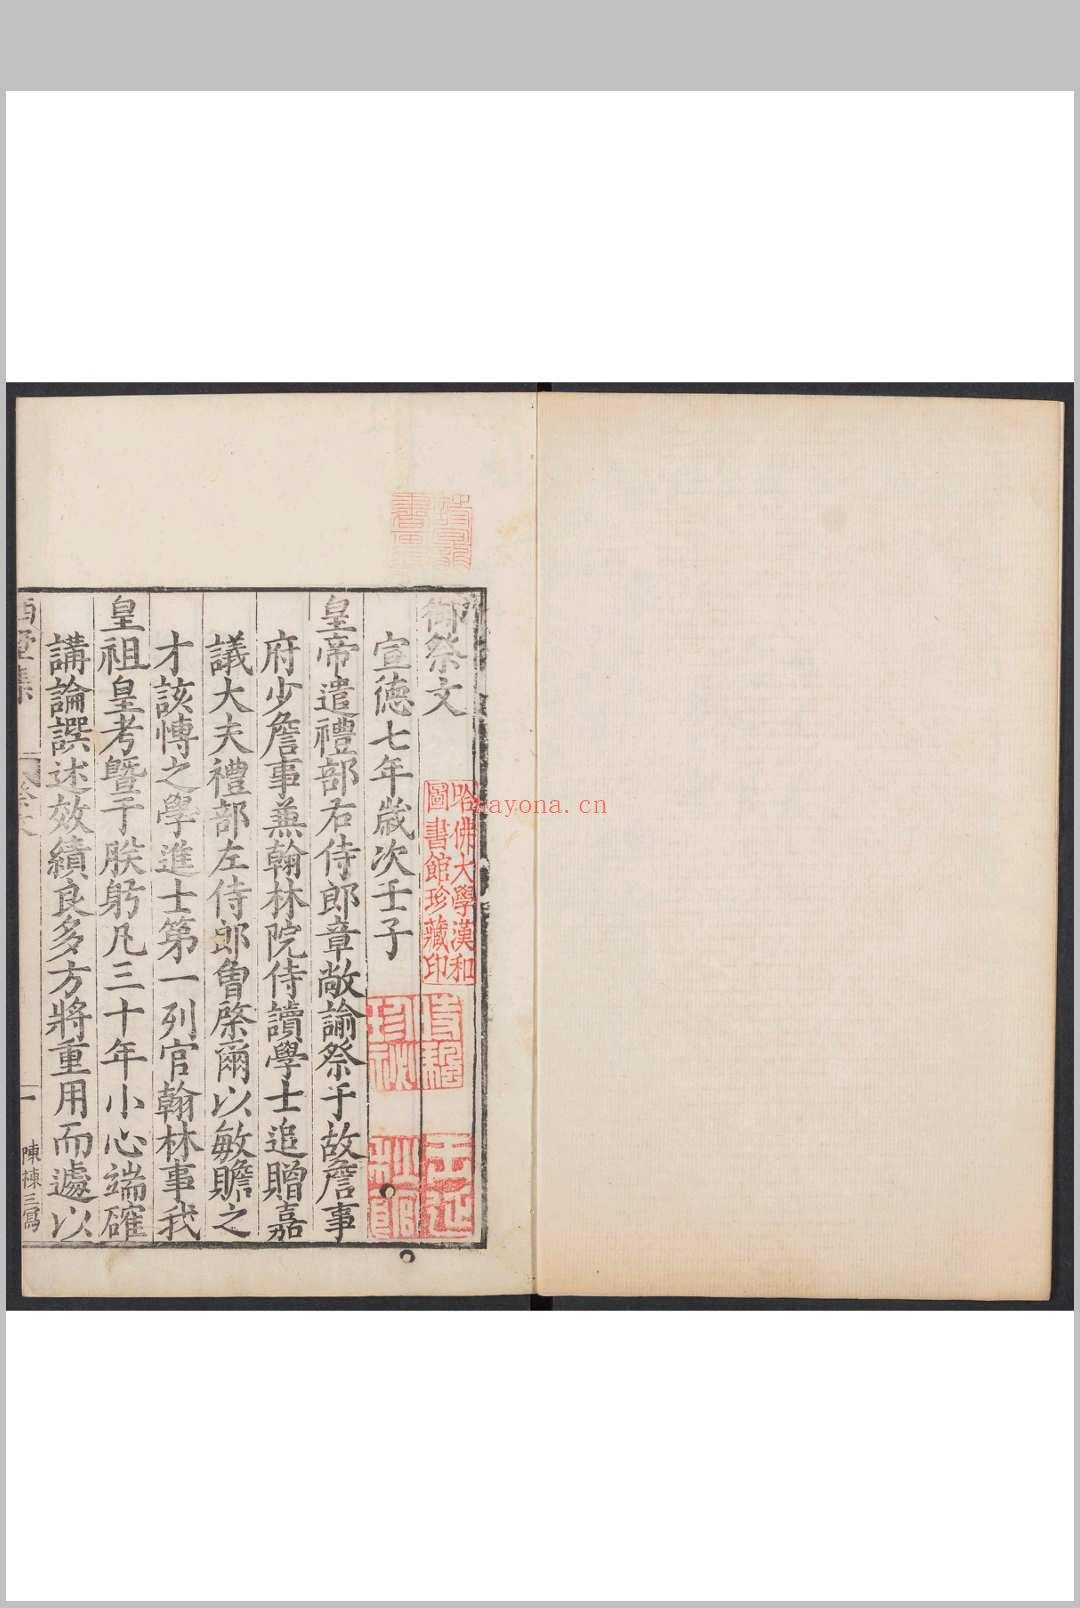 御祭文
宣德七年歲次壬子
皇帝遣禮部右侍郎章敞諭祭于故詹事
府少詹事兼翰林院侍讀學士追贈嘉
議大夫禮部左侍郎曾棨爾以敏贍之
才該愽之學進士第一列官翰林事我
皇祖皇考暨于朕躬凡三十年小心端確
講論譔述效績良多方將重用而遽以
西墅集
祭文
一
陳棟三寫
哈佛大學漢和
圖書館珍藏印
nayona.cn